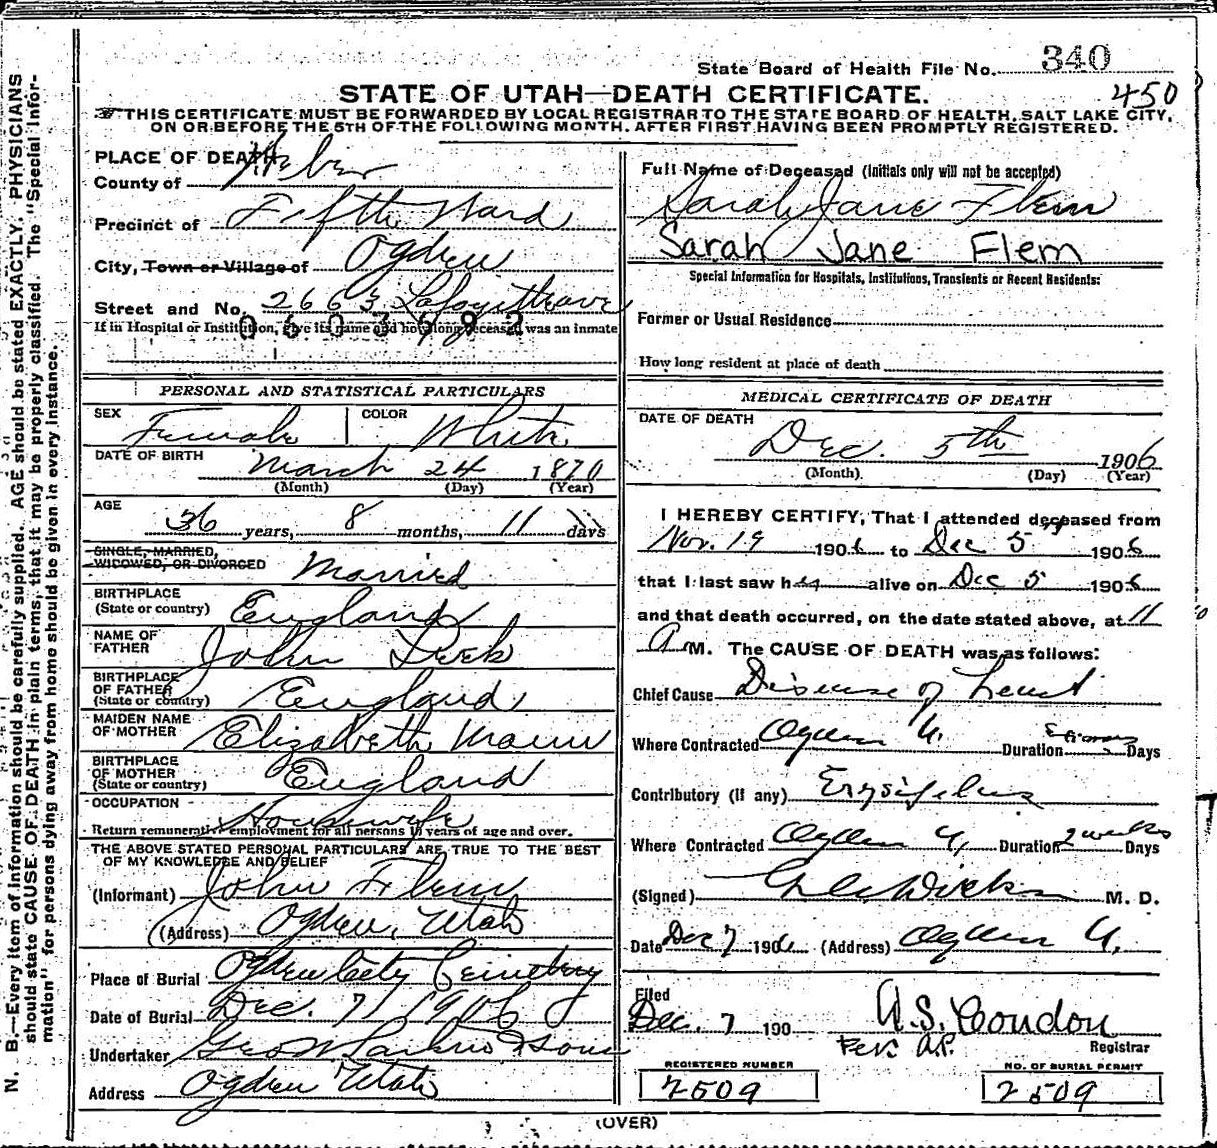 State Board of Health File No. 340
450
STATE OF UTAH—DEATH CERTIFICATE.
THIS CERTIFICATE MUST BE FORWARDED BY LOCAL REGISTRAR TO THE STATE BOARD OF HEALTH, SALT LAKE CITY,
ON OR BEFORE THE 5TH OF THE FOLLOWING MONTH, AFTER FIRST HAVING BEEN PROMPTLY REGISTERED.
PLACE OF DEATH
County of Weber
Precinct of Fifth Ward
City, Town or Village of Ogden
Street and No. 2663 Lafayette ave
If in Hospital or Institution, give its name and how long deceased was an inmate
PERSONAL AND STATISTICAL PARTICULARS
SEX Female COLOR White
DATE OF BIRTH March 24 1870
(Month) (Day) (Year)
AGE 36 years, 8 months, 11 days
SINGLE, MARRIED,
WIDOWED, OR DIVORCED Married
BIRTHPLACE
(State or country) England
NAME OF
FATHER John
BIRTHPLACE
OF FATHER
(State or country) England
MAIDEN NAME
OF MOTHER Elizabeth Mann
BIRTHPLACE
OF MOTHER
(State or country) England
OCCUPATION Housewife
Return remunerative employment for all persons 10 years of age and over.
THE ABOVE STATED PERSONAL PARTICULARS ARE TRUE TO THE BEST
OF MY KNOWLEDGE AND BELIEF
(Informant) John Flem
(Address) Ogden, Utah
Place of Burial Ogden City Cemetery
Date of Burial Dec. 7 1906
Undertaker Geo W Larkin & Sons
Address Ogden Utah
Full Name of Deceased (Initials only will not be accepted)
Sarah Jane Flem
Sarah Jane Flem
Special Information for Hospitals, Institutions, Transients or Recent Residents:
Former or Usual Residence
How long resident at place of death
MEDICAL CERTIFICATE OF DEATH
DATE OF DEATH
Dec. 5th 1906
(Month) (Day) (Year)
I HEREBY CERTIFY, That I attended deceased from
Nov. 19 1906 to Dec 5 1906
that I last saw her alive on Dec 5 1906
and that death occurred, on the date stated above, at 11
A M. The CAUSE OF DEATH was as follows:
Chief Cause Disease of heart
Where Contracted Ogden U. Duration Days
Contributory (if any) Erysipelas
Where Contracted Ogden U, Duration 2 weeks Days
(Signed) M. D.
Date Dec 7 1906 (Address) Ogden U.
Filed
Dec. 7 190 A. S. Condon
Per A.P. Registrar
REGISTERED NUMBER
2509
NO. OF BURIAL PERMIT
2509
(OVER)
N. B.—Every item of information should be carefully supplied. AGE should be stated EXACTLY. PHYSICIANS
should state CAUSE OF DEATH in plain terms, that it may be properly classified. The "Special Infor-
mation" for persons dying away from home should be given in every instance.